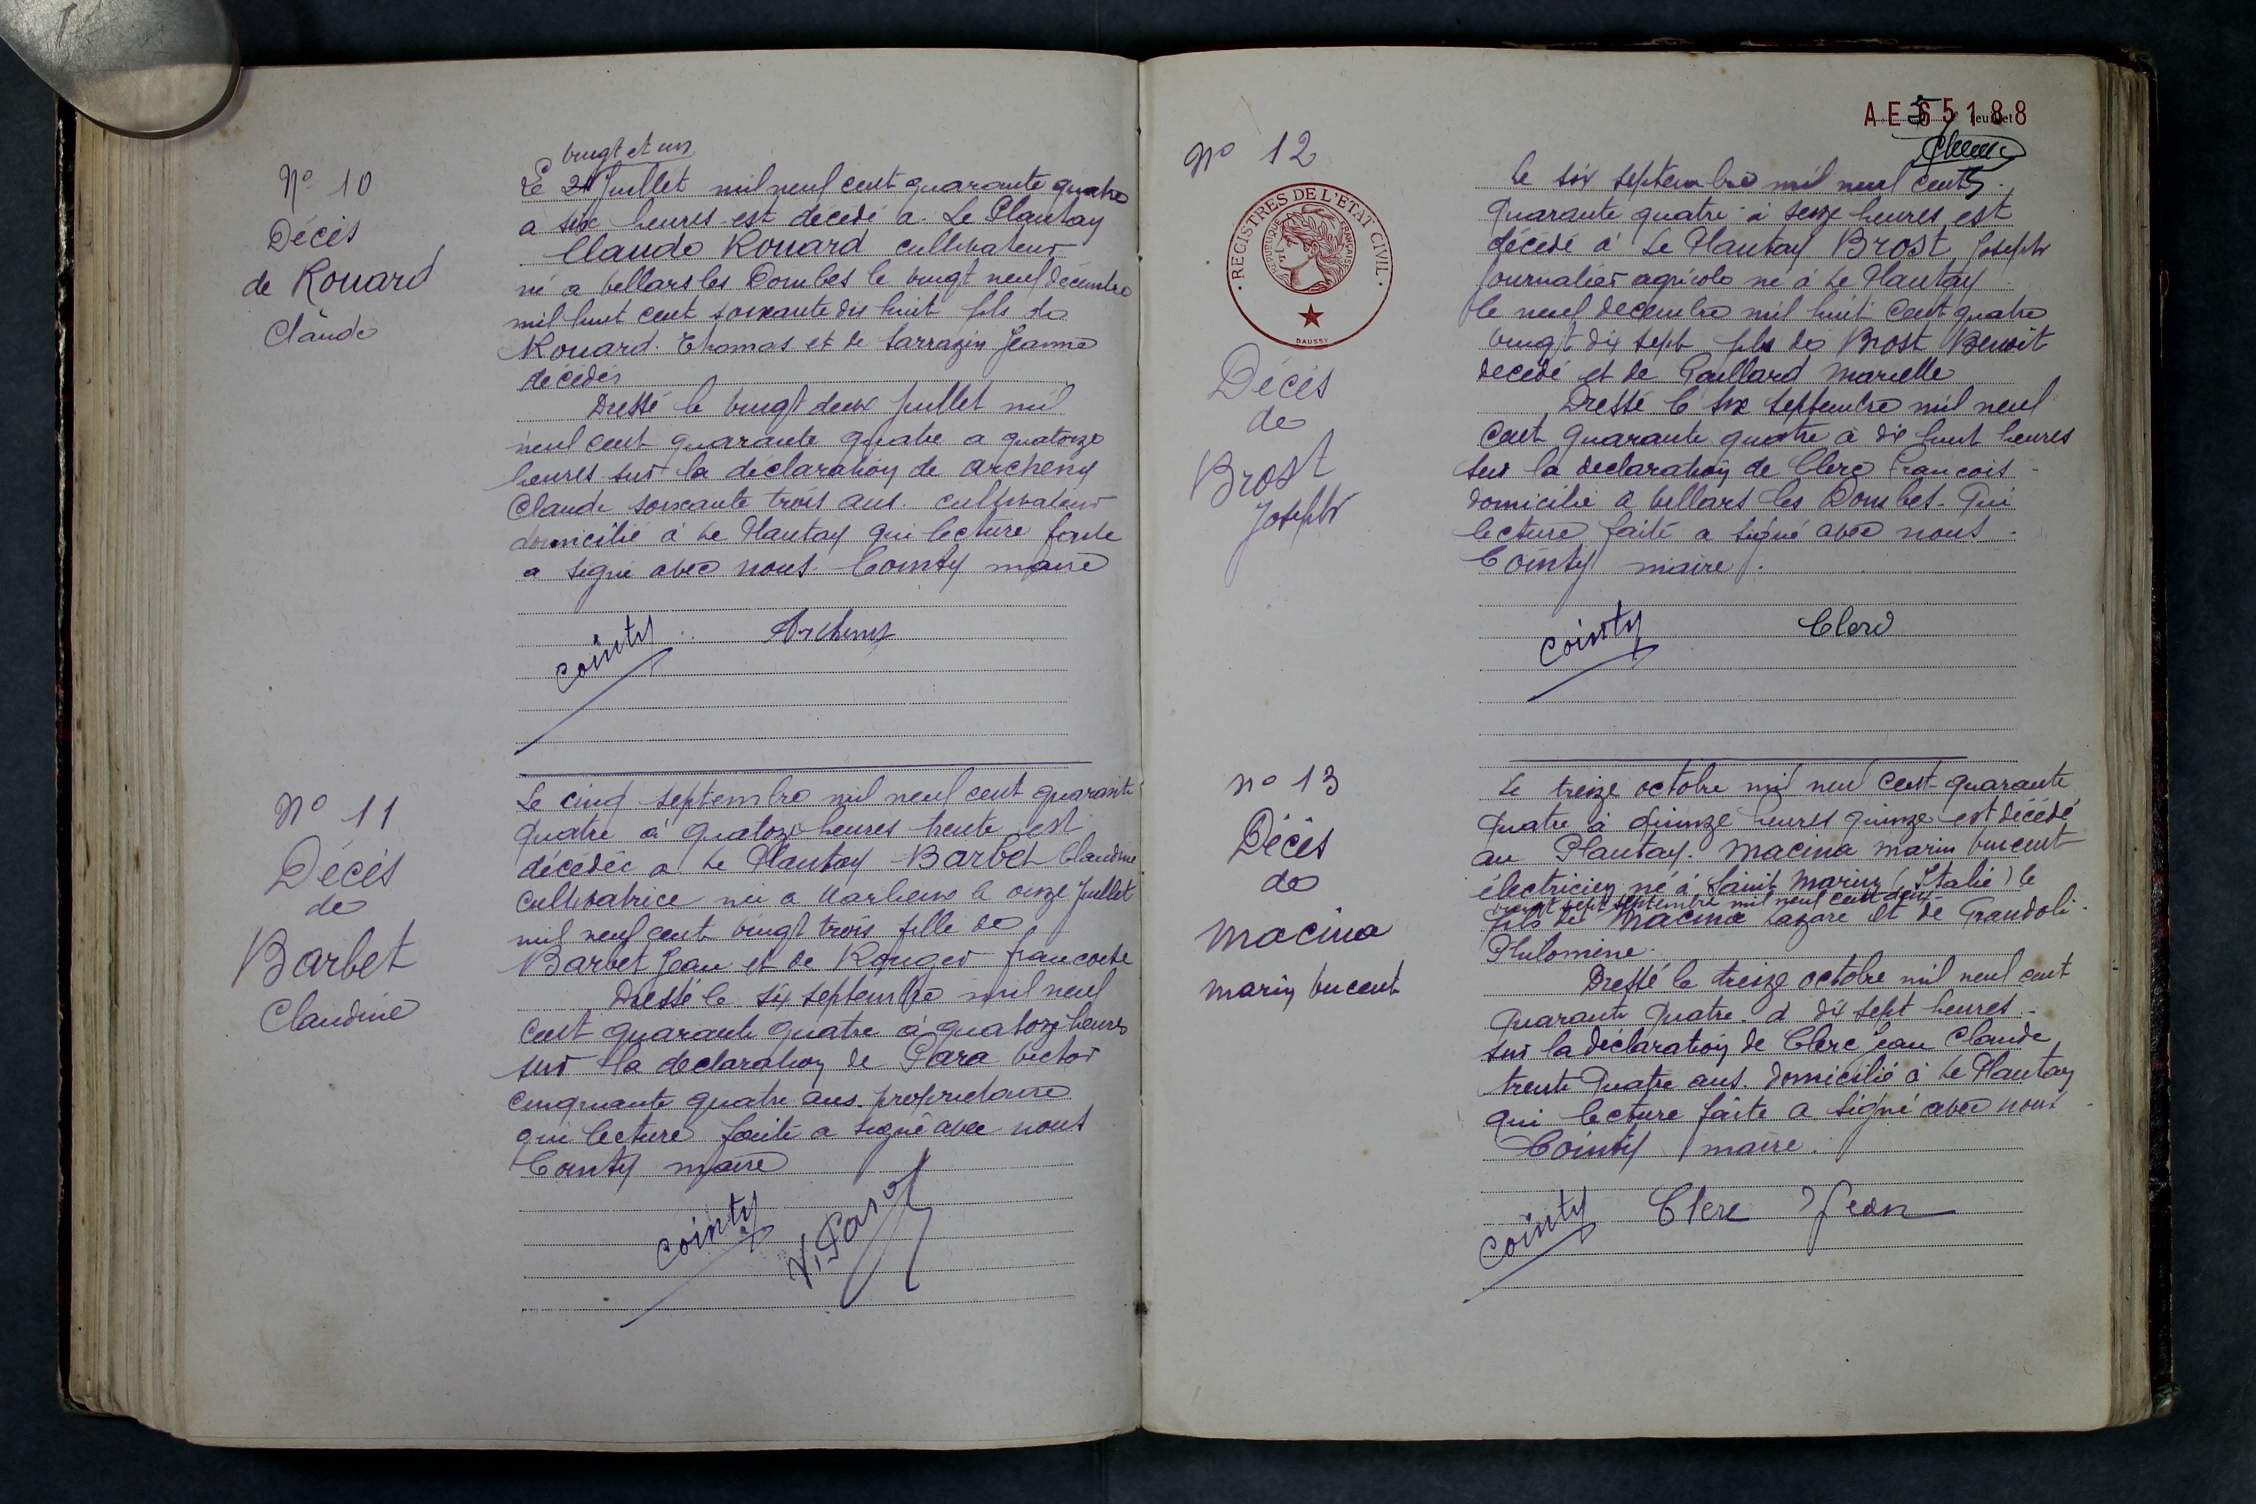 N° 10
Décès
de Rouard
Claude
vingt et un
Le 21 Juillet mil neuf cent quarante quatre
a six heures est décédé a Le Plantay
Claude Rouard cultivateur
né a Villars les Dombes le vingt neuf décembre
mil huit cent soixante dix huit fils de
Rouard Thomas et de Sarrazin Jeanne
décédés
Dressé le vingt deux Juillet mil
neuf cent quarante quatre a quatorze
heures sur la déclaration de Archeny
Claude soixante trois ans cultivateur
domicilié à Le Plantay qui lecture faite
a signé avec nous Cointy maire
Cointy Archeny
N° 11
Décès
de
Barbet
Claudine
Le cinq septembre mil neuf cent quarante
quatre à quatorze heures trente est
décédée a Le Plantay Barbet Claudine
cultivatrice née a Marlieux le onze Juillet
mil neuf cent vingt trois fille de
Barbet Jean et de Francoise
Dressé le six septembre mil neuf
cent quarante quatre à quatorze heures
sur la declaration de Para Victor
cinquante quatre ans propriétaire
qui lecture faite a signé avec nous
Cointy maire
Cointy V. Para
AE 65188
feuillet
N° 12
REGISTRES DE L'ETAT CIVIL
REPUBLIQUE FRANCAISE
DAUSSY
Décès
de
Brost
Joseph
le six septembre mil neuf cent
quarante quatre à seize heures est
décédé à Le Plantay Brost Joseph
Journalier agricole né à Le Plantay
le neuf decembre mil huit cent quatre
vingt dix sept fils de Brost Benoit
decedé et de Paillard Marielle
Dressé le six septembre mil neuf
cent quarante quatre à dix huit heures
sur la declaration de Clerc Francois
domicilié a Villars les Dombes qui
lecture faite a signé avec nous
Cointy maire.
Cointy Clerc
n° 13
Décès
de
Macina
Marin Vincent
Le treize octobre mil neuf cent quarante
quatre à quinze heures quinze est décédé
au Plantay. Macina Marin Vincent
électricien né à Saint Marin (Italie) le
vingt sept septembre mil neuf cent deux
fils de Macina Lazare et de Grandoli
Philomène.
Dressé le treize octobre mil neuf cent
quarante quatre à dix sept heures
sur la déclaration de Clerc Jean Claude
trente quatre ans. domicilié à Le Plantay
qui lecture faite a signé avec nous
Cointy maire.
Cointy Clerc Jean